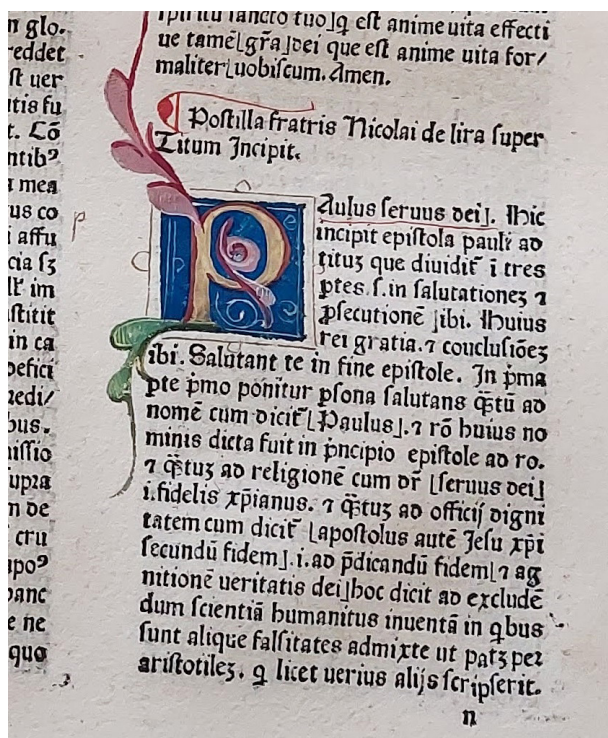 n glo.
reddet
ſt uer
utis fu
t. Cō
ntibꝰ
a mea
us co
i affu
cia ſꝫ
im
ſtitit
in ca
befici
nedi/
bus.
iſſio
upra
m de
cru
apoꝰ
hanc
e ne
quo
ſpiritu ſancto tuo]ꝙ eſt anime uita effecti
ue tamē[gr̄a]dei que eſt anime uita for/
maliter[uobiſcum. Amen.
Poſtilla fratris Nicolai de lira ſuper
Titum Incipit.
PAulus ſeruus dei]. Hic
incipit epiſtola pauli ad
titū que diuidit̄ ī tres
ꝑtes.ſ.in ſalutationeꝫ ⁊
ꝓſecutionē ]ibi. Huius
rei gratia.⁊ concluſiōeꝫ
ibi. Salutant te in fine epiſtole. In p̄ma
ꝑte p̄mo ponitur ꝑſona ſalutans q̄ſtū ad
nomē cum dicit̄ [Paulus].⁊ rō huius no
minis dicta fuit in p̄ncipio epiſtole ad ro.
⁊ q̄ſtuꝫ ad religionē cum dr̄ [ſeruus dei]
i.fidelis xp̄ianus. ⁊ q̄ſtuꝫ ad officij digni
tatem cum dicit̄ [apoſtolus autē Jeſu xp̄i
ſecundū fidem].i.ad p̄dicandū fidem[⁊ ag
nitionē ueritatis dei]hoc dicit ad excludē
dum ſcientiā humanitus inuentā in qbus
ſunt alique falſitates admixte ut patꝫ per
ariſtotileꝫ. ꝙ licet uerius alijs ſcripſerit.
n
p